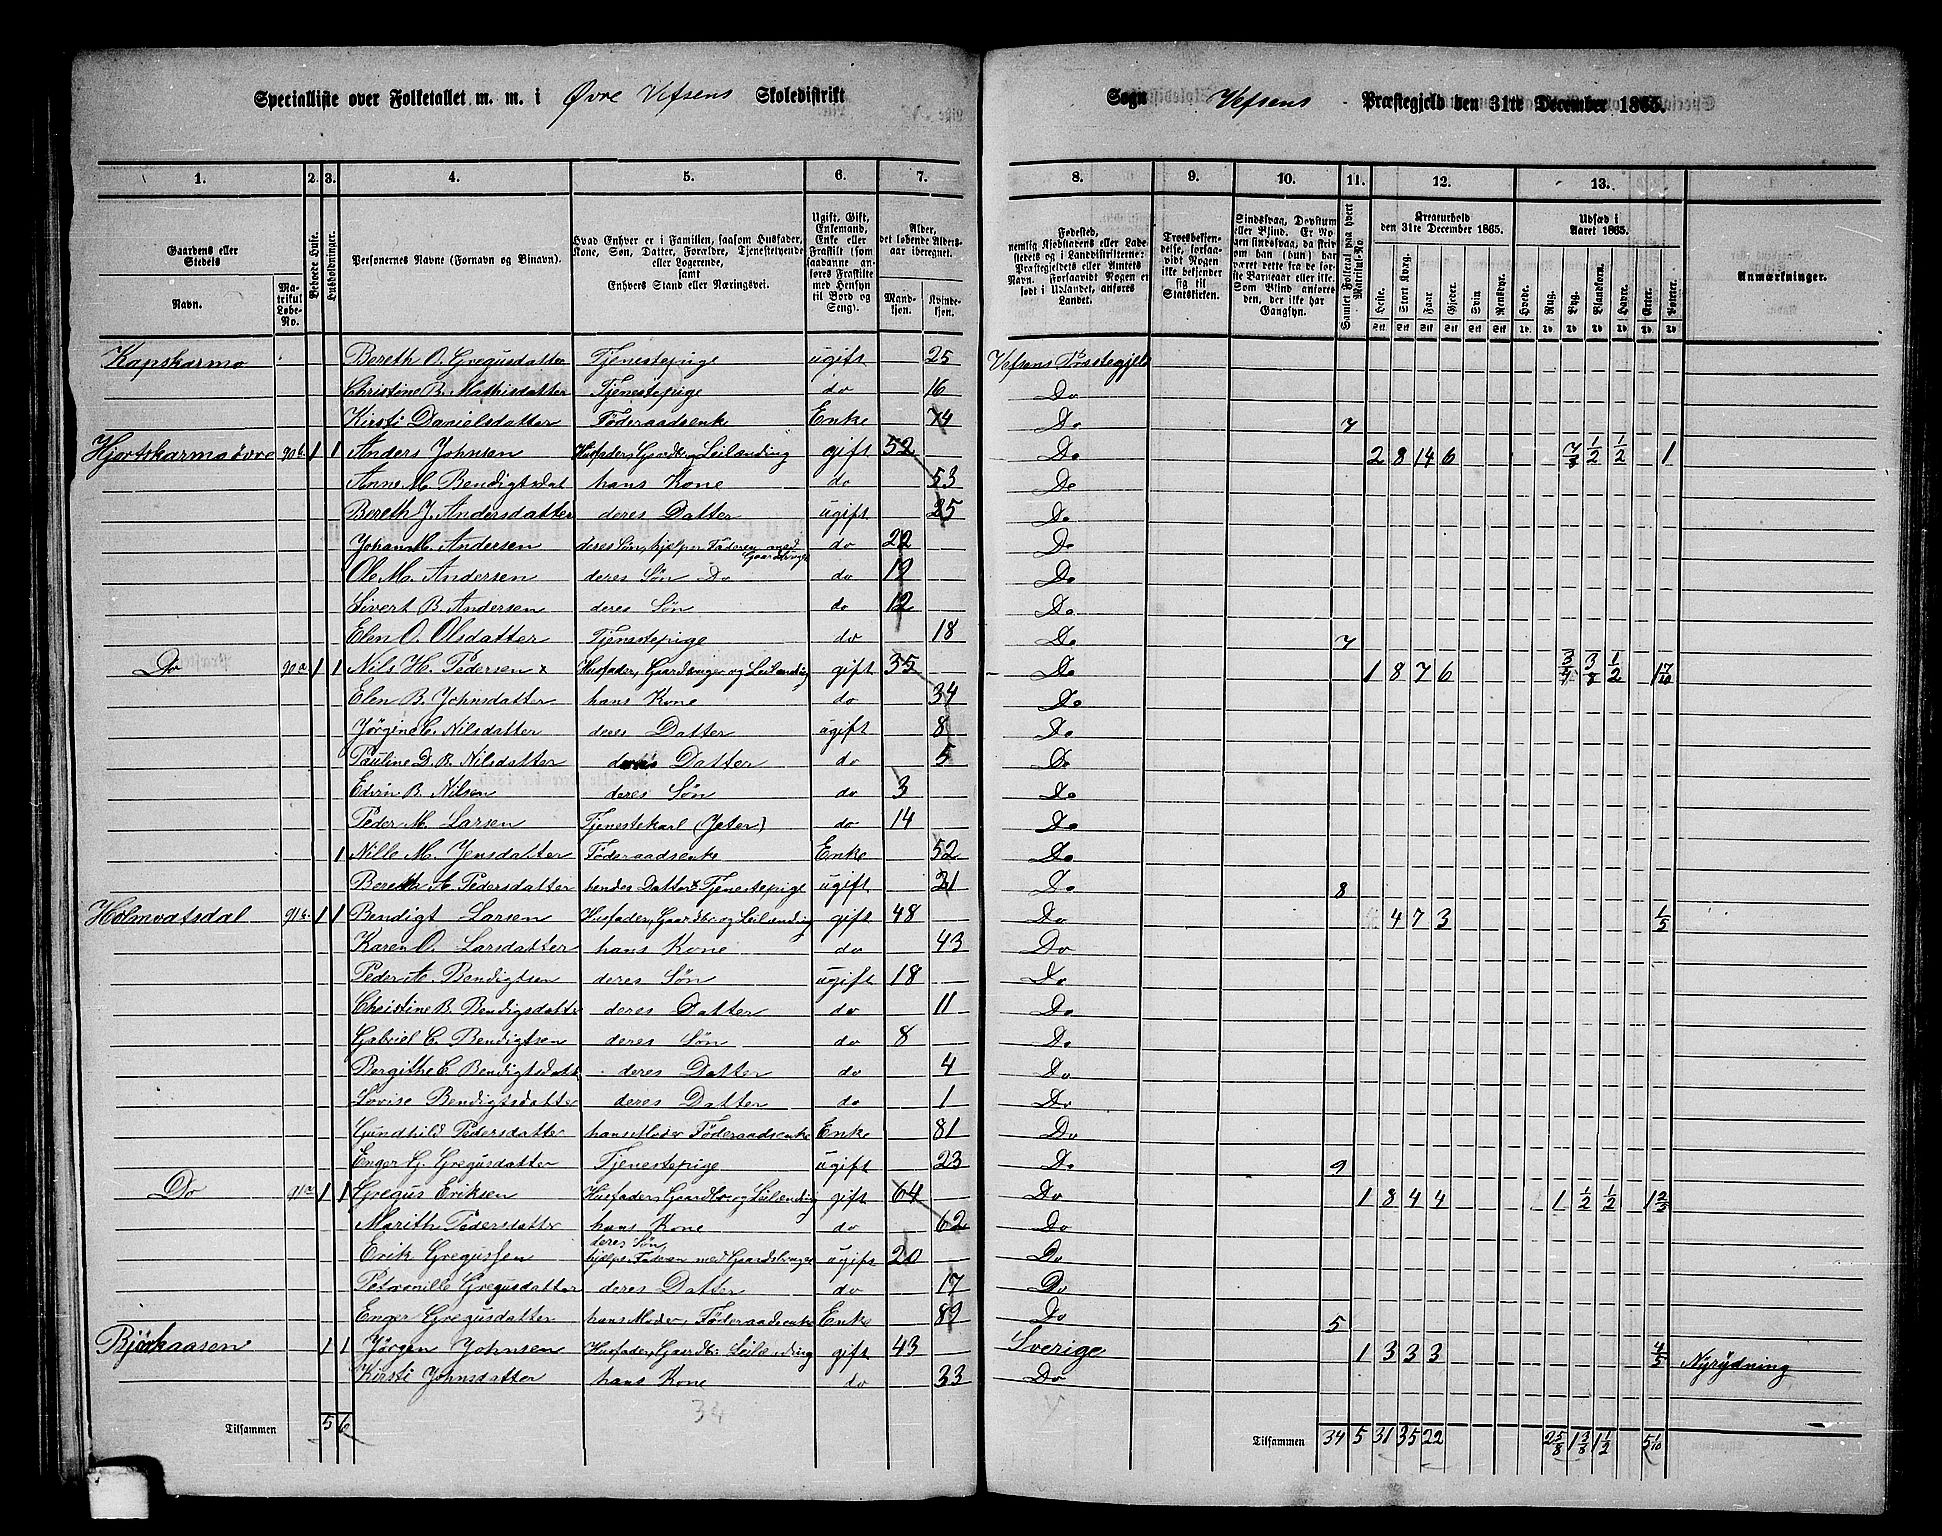 Specialliste over Folketallet m. m. i Øvre Vefsens Skoledistrikt Sogn Vefsens Præstegjeld den 31te December 1865.
1. 2. 3. 4. 5. 6. 7. 8. 9. 10. 11. 12. 13.
Gaardens eller Stedets Navn. Matrikul Løbe-No. Beboede Huse. Husholdninger. Personernes Navne (Fornavn og Binavn). Hvad Enhver er i Familien, saasom Husfader, Kone, Søn, Datter, Forældre, Tjenestetyende eller Logerende, samt Enhvers Stand eller Næringsvei. Ugift, Gift, Enkemand, Enke eller Fraskilt (som saadanne anføres Fraskilte med Hensyn til Bord og Seng). Alder, det løbende Aldersaar iberegnet. Mandkjøn. Kvindekjøn. Fødested, nemlig Kjøbstadens eller Ladestedets og i Landdistrikterne: Præstegjeldets eller Amtets Navn. Forsaavidt Nogen er født i Udlandet, anføres Landet. Troesbekjendelse, forsaavidt Nogen ikke bekjender sig til Statskirken. Sindssvag, Døvstum eller Blind. Samlet Folketal paa hvert Matrikul-No. Kreaturhold den 31te December 1865. Heste. Stort Kvæg. Faar. Gjeder. Svin. Rensdyr. Udsæd i Aaret 1865. Hvede. Rug. Byg. Blandkorn. Havre. Erter. Poteter. Anmærkninger.
Kapskarmo Bereth O. Gregusdatter Tjenestepige ugift 25 Vefsens Præstegjeld
Christine B. Mathisdatter Tjenestepige do 16 Do
Kirsti Danielsdatter Föderaadsenke Enke 74 Do 7
Hjortskarmo övre 90b 1 1 Anders Johnsen Husfader, Gaardbr og Leilænding gift 52 Do 2 8 14 6 1/2 1/2 1
Anne M. Bendigtsdat hans Kone do 53 Do
Bereth J. Andersdatter deres Datter ugift 25 Do
Johan M. Andersen deres Søn, hjelper Faderen med Gaardsbruget do 22 Do
Ole M. Andersen deres Søn Do do 19 Do
Sivert B. Andersen deres Søn do 12 Do
Elen O. Olsdatter Tjenestepige do 18 Do 7
Do 90a 1 1 Nils H. Pedersen x Husfader, Gaardbruger og Leilænding gift 35 Do 1 8 7 6 3/4 3/8 1/2 1 7/10
Elen B. Johnsdatter hans Kone do 34 Do
Jørgine C. Nilsdatter deres Datter ugift 8 Do
Pauline D. B. Nilsdatter deres Datter do 5 Do
Edvin B. Nilsen deres Søn do 3 Do
Peder M. Larsen Tjenestekarl (Jeter) do 14 Do
1 Nille M. Jensdatter Föderaadsenke Enke 52 Do
Bereth A. Pedersdatter hendes Datter x Tjenestepige ugift 21 Do 8
Holmvatsdal 91b 1 1 Bendigt Larsen Husfader, Gaardbr og Leilænding gift 48 Do 4 7 3 1/5
Karen O. Larsdatter hans Kone do 43 Do
Peder A. Bendigtsen deres Søn ugift 18 Do
Christine B. Bendigsdatter deres Datter do 11 Do
Gabriel C. Bendigtsen deres Søn do 8 Do
Bergithe C Bendigtsdatt deres Datter do 4 Do
Lovise Bendigtsdatter deres Datter do 1 Do
Gundhild Pedersdatter hans Moder Föderaadsenke Enke 81 Do
Enger G. Gregusdatter Tjenestepige ugift 23 Do 9
Do 91a 1 1 Gregus Eriksen Husfader, Gaardbr og Leilænding gift 64 Do 1 8 4 4 1 1/2 1/2 1 2/5
Marith Pedersdatter hans Kone do 62 Do
Erik Gregussen deres Søn hjelper Faderen med Gaardsbruget ugift 20 Do
Petronille Gregusdatter deres Datter do 17 Do
Enger Gregusdatter hans Moder, Föderaadsenke Enke 89 Do 5
Bjørkaasen 1 1 Jørgen Johnsen Husfader, Gaardbr Leilænding gift 43 Sverige 1 3 3 3 4/5 Nyrydning
Kirsti Johnsdatter hans Kone do 33 Do
34
Tilsammen 5 6 Tilsammen 34 5 31 35 22 2 5/8 1 3/8 1 1/2 5 1/10